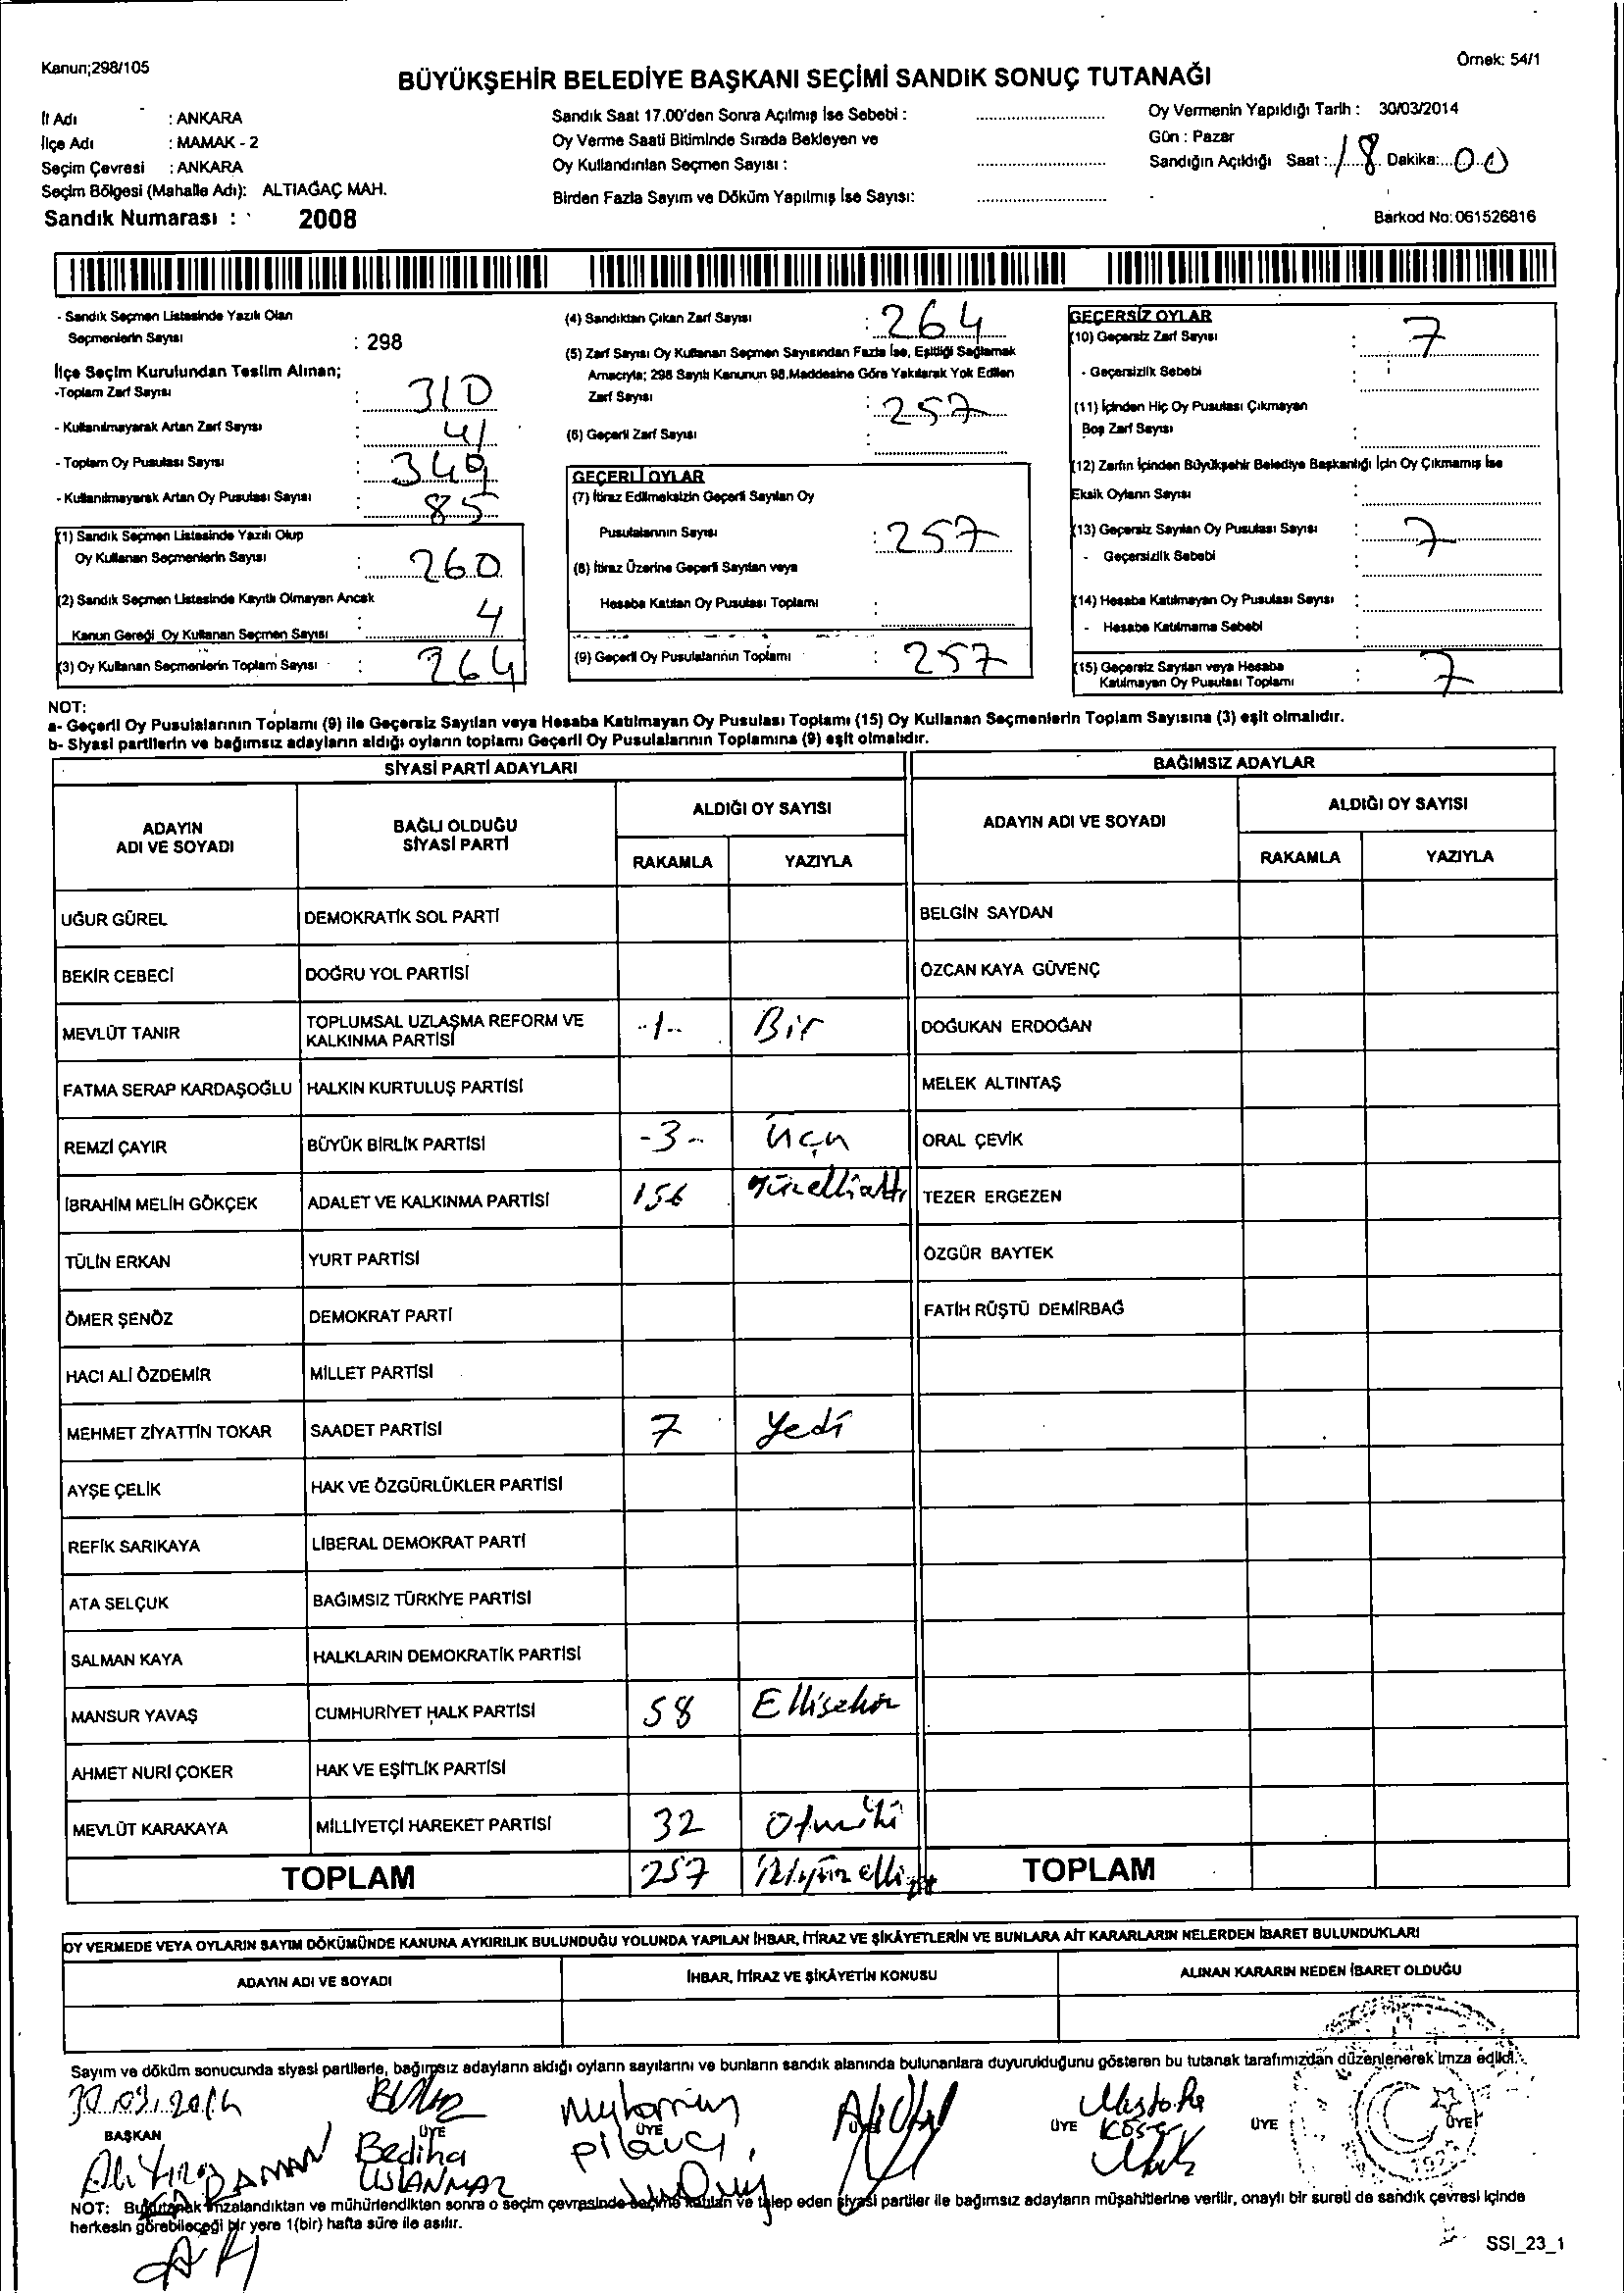 Kanun;298/105
Örnek: 54/1
BÜYÜKŞEHİR BELEDİYE BAŞKANI SEÇİMİ SANDIK SONUÇ TUTANAĞI
İl Adı : ANKARA
İlçe Adı : MAMAK - 2
Seçim Çevresi : ANKARA
Seçim Bölgesi (Mahalle Adı): ALTIAĞAÇ MAH.
Sandık Numarası : 2008
Sandık Saat 17.00'den Sonra Açılmış İse Sebebi :
Oy Verme Saati Bitiminde Sırada Bekleyen ve
Oy Kullandırılan Seçmen Sayısı :
Birden Fazla Sayım ve Döküm Yapılmış İse Sayısı:
Oy Vermenin Yapıldığı Tarih : 30/03/2014
Gün : Pazar
Sandığın Açıldığı Saat : 18 Dakika: 00
Barkod No: 061526816
- Sandık Seçmen Listesinde Yazılı Olan
Seçmenlerin Sayısı : 298
İlçe Seçim Kurulundan Teslim Alınan;
-Toplam Zarf Sayısı : 310
- Kullanılmayarak Artan Zarf Sayısı : 41
- Toplam Oy Pusulası Sayısı : 349
- Kullanılmayarak Artan Oy Pusulası Sayısı : 85
(1) Sandık Seçmen Listesinde Yazılı Olup
Oy Kullanan Seçmenlerin Sayısı : 260
(2) Sandık Seçmen Listesinde Kayıtlı Olmayan Ancak
Kanun Gereği Oy Kullanan Seçmen Sayısı : 4
(3) Oy Kullanan Seçmenlerin Toplam Sayısı : 264
(4) Sandıktan Çıkan Zarf Sayısı : 264
(5) Zarf Sayısı Oy Kullanan Seçmen Sayısından Fazla İse, Eşitliği Sağlamak
Amacıyla; 298 Sayılı Kanunun 98.Maddesine Göre Yakılarak Yok Edilen
Zarf Sayısı : 257
(6) Geçerli Zarf Sayısı :
GEÇERLİ OYLAR
(7) İtiraz Edilmeksizin Geçerli Sayılan Oy
Pusulalarının Sayısı : 257
(8) İtiraz Üzerine Geçerli Sayılan veya
Hesaba Katılan Oy Pusulası Toplamı :
(9) Geçerli Oy Pusulalarının Toplamı : 257
GEÇERSİZ OYLAR
(10) Geçersiz Zarf Sayısı : 7
- Geçersizlik Sebebi :
(11) İçinden Hiç Oy Pusulası Çıkmayan
Boş Zarf Sayısı :
(12) Zarfın İçinden Büyükşehir Belediye Başkanlığı İçin Oy Çıkmamış İse
Eksik Oyların Sayısı :
(13) Geçersiz Sayılan Oy Pusulası Sayısı : 7
- Geçersizlik Sebebi :
(14) Hesaba Katılmayan Oy Pusulası Sayısı :
- Hesaba Katılmama Sebebi :
(15) Geçersiz Sayılan veya Hesaba
Katılmayan Oy Pusulası Toplamı : 7
NOT:
a- Geçerli Oy Pusulalarının Toplamı (9) ile Geçersiz Sayılan veya Hesaba Katılmayan Oy Pusulası Toplamı (15) Oy Kullanan Seçmenlerin Toplam Sayısına (3) eşit olmalıdır.
b- Siyasi partilerin ve bağımsız adayların aldığı oyların toplamı Geçerli Oy Pusulalarının Toplamına (9) eşit olmalıdır.
SİYASİ PARTİ ADAYLARI BAĞIMSIZ ADAYLAR
ADAYIN ADI VE SOYADI BAĞLI OLDUĞU SİYASİ PARTİ ALDIĞI OY SAYISI RAKAMLA YAZIYLA ADAYIN ADI VE SOYADI ALDIĞI OY SAYISI RAKAMLA YAZIYLA
UĞUR GÜREL DEMOKRATİK SOL PARTİ BELGİN SAYDAN
BEKİR CEBECİ DOĞRU YOL PARTİSİ ÖZCAN KAYA GÜVENÇ
MEVLÜT TANIR TOPLUMSAL UZLAŞMA REFORM VE KALKINMA PARTİSİ -1- Bir DOĞUKAN ERDOĞAN
FATMA SERAP KARDAŞOĞLU HALKIN KURTULUŞ PARTİSİ MELEK ALTINTAŞ
REMZİ ÇAYIR BÜYÜK BİRLİK PARTİSİ -3- ORAL ÇEVİK
İBRAHİM MELİH GÖKÇEK ADALET VE KALKINMA PARTİSİ 156 yüzelliattı TEZER ERGEZEN
TÜLİN ERKAN YURT PARTİSİ ÖZGÜR BAYTEK
ÖMER ŞENÖZ DEMOKRAT PARTİ FATİH RÜŞTÜ DEMİRBAĞ
HACI ALİ ÖZDEMİR MİLLET PARTİSİ
MEHMET ZİYATTİN TOKAR SAADET PARTİSİ 7 Yedi
AYŞE ÇELİK HAK VE ÖZGÜRLÜKLER PARTİSİ
REFİK SARIKAYA LİBERAL DEMOKRAT PARTİ
ATA SELÇUK BAĞIMSIZ TÜRKİYE PARTİSİ
SALMAN KAYA HALKLARIN DEMOKRATİK PARTİSİ
MANSUR YAVAŞ CUMHURİYET HALK PARTİSİ 58 Ellisekiz
AHMET NURİ ÇOKER HAK VE EŞİTLİK PARTİSİ
MEVLÜT KARAKAYA MİLLİYETÇİ HAREKET PARTİSİ 32 Otuziki
TOPLAM 257 TOPLAM
OY VERMEDE VEYA OYLARIN SAYIM DÖKÜMÜNDE KANUNA AYKIRILIK BULUNDUĞU YOLUNDA YAPILAN İHBAR, İTİRAZ VE ŞİKÂYETLERİN VE BUNLARA AİT KARARLARIN NELERDEN İBARET BULUNDUKLARI
ADAYIN ADI VE SOYADI İHBAR, İTİRAZ VE ŞİKÂYETİN KONUSU ALINAN KARARIN NEDEN İBARET OLDUĞU
Sayım ve döküm sonucunda siyasi partilerle, bağımsız adayların aldığı oyların sayılarını ve bunların sandık alanında bulunanlara duyurulduğunu gösteren bu tutanak tarafımızdan düzenlenerek imza edildi.
30.03.2014 Muharrem Mustafa
BAŞKAN ÜYE ÜYE ÜYE ÜYE ÜYE
Bediha Pilavcı Köse
USLANMAZ
NOT: Bu tutanak imzalandıktan ve mühürlendikten sonra o seçim çevresinde seçime katılan ve talep eden siyasi partiler ile bağımsız adayların müşahitlerine verilir, onaylı bir sureti de sandık çevresi içinde
herkesin görebileceği bir yere 1(bir) hafta süre ile asılır.
SSI_23_1